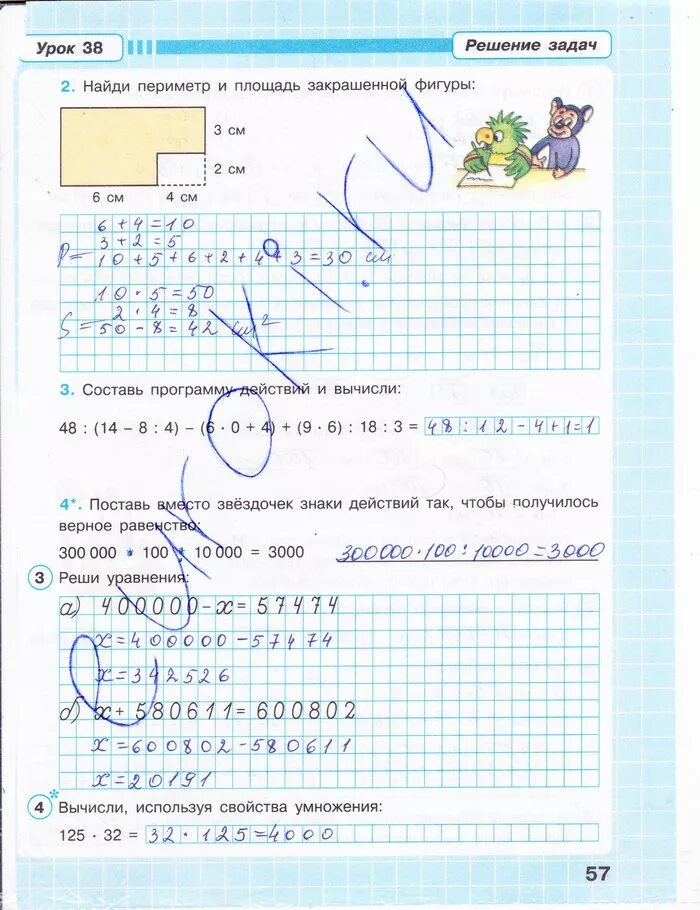 Урок 38
Решение задач
2. Найди периметр и площадь закрашенной фигуры:
3 см
2 см
6 см 4 см
6 + 4 = 10
3 + 2 = 5
P = 10 + 5 + 6 + 2 + 4 + 3 = 30 см
10 · 5 = 50
2 · 4 = 8
S = 50 - 8 = 42 см²
3. Составь программу действий и вычисли:
48 : (14 – 8 : 4) – (6 · 0 + 4) + (9 · 6) : 18 : 3 = 48 : 12 - 4 + 1 = 1
4*. Поставь вместо звёздочек знаки действий так, чтобы получилось
верное равенство:
300 000 * 100 * 10 000 = 3000 300000 · 100 : 10000 = 3000
3 Реши уравнения:
а) 400000 - x = 57474
x = 400000 - 57474
x = 342526
б) x + 580611 = 600802
x = 600802 - 580611
x = 20191
4* Вычисли, используя свойства умножения:
125 · 32 = 32 · 125 = 4000
57
urokki.ru